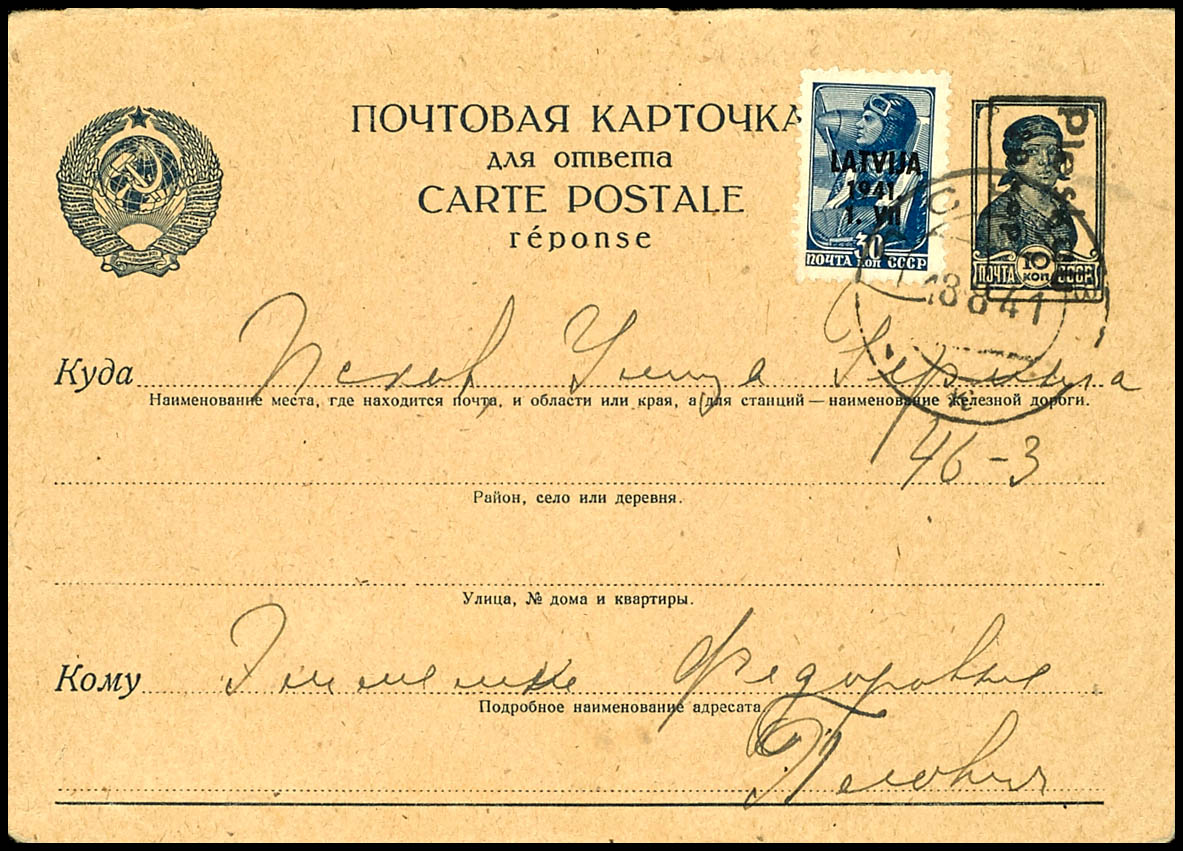 ПОЧТОВАЯ КАРТОЧКА
для ответа
CARTE POSTALE
réponse
LATVIJA
1941
1. VII
30
ПОЧТА КОП СССР
10
ПОЧТА КОП СССР
18 8 41
Куда Псков Улица Герцена
Наименование места, где находится почта, и области или края, а для станций — наименование железной дороги.
46-3
Район, село или деревня.
Улица, № дома и квартиры.
Кому Федоровне
Подробное наименование адресата.